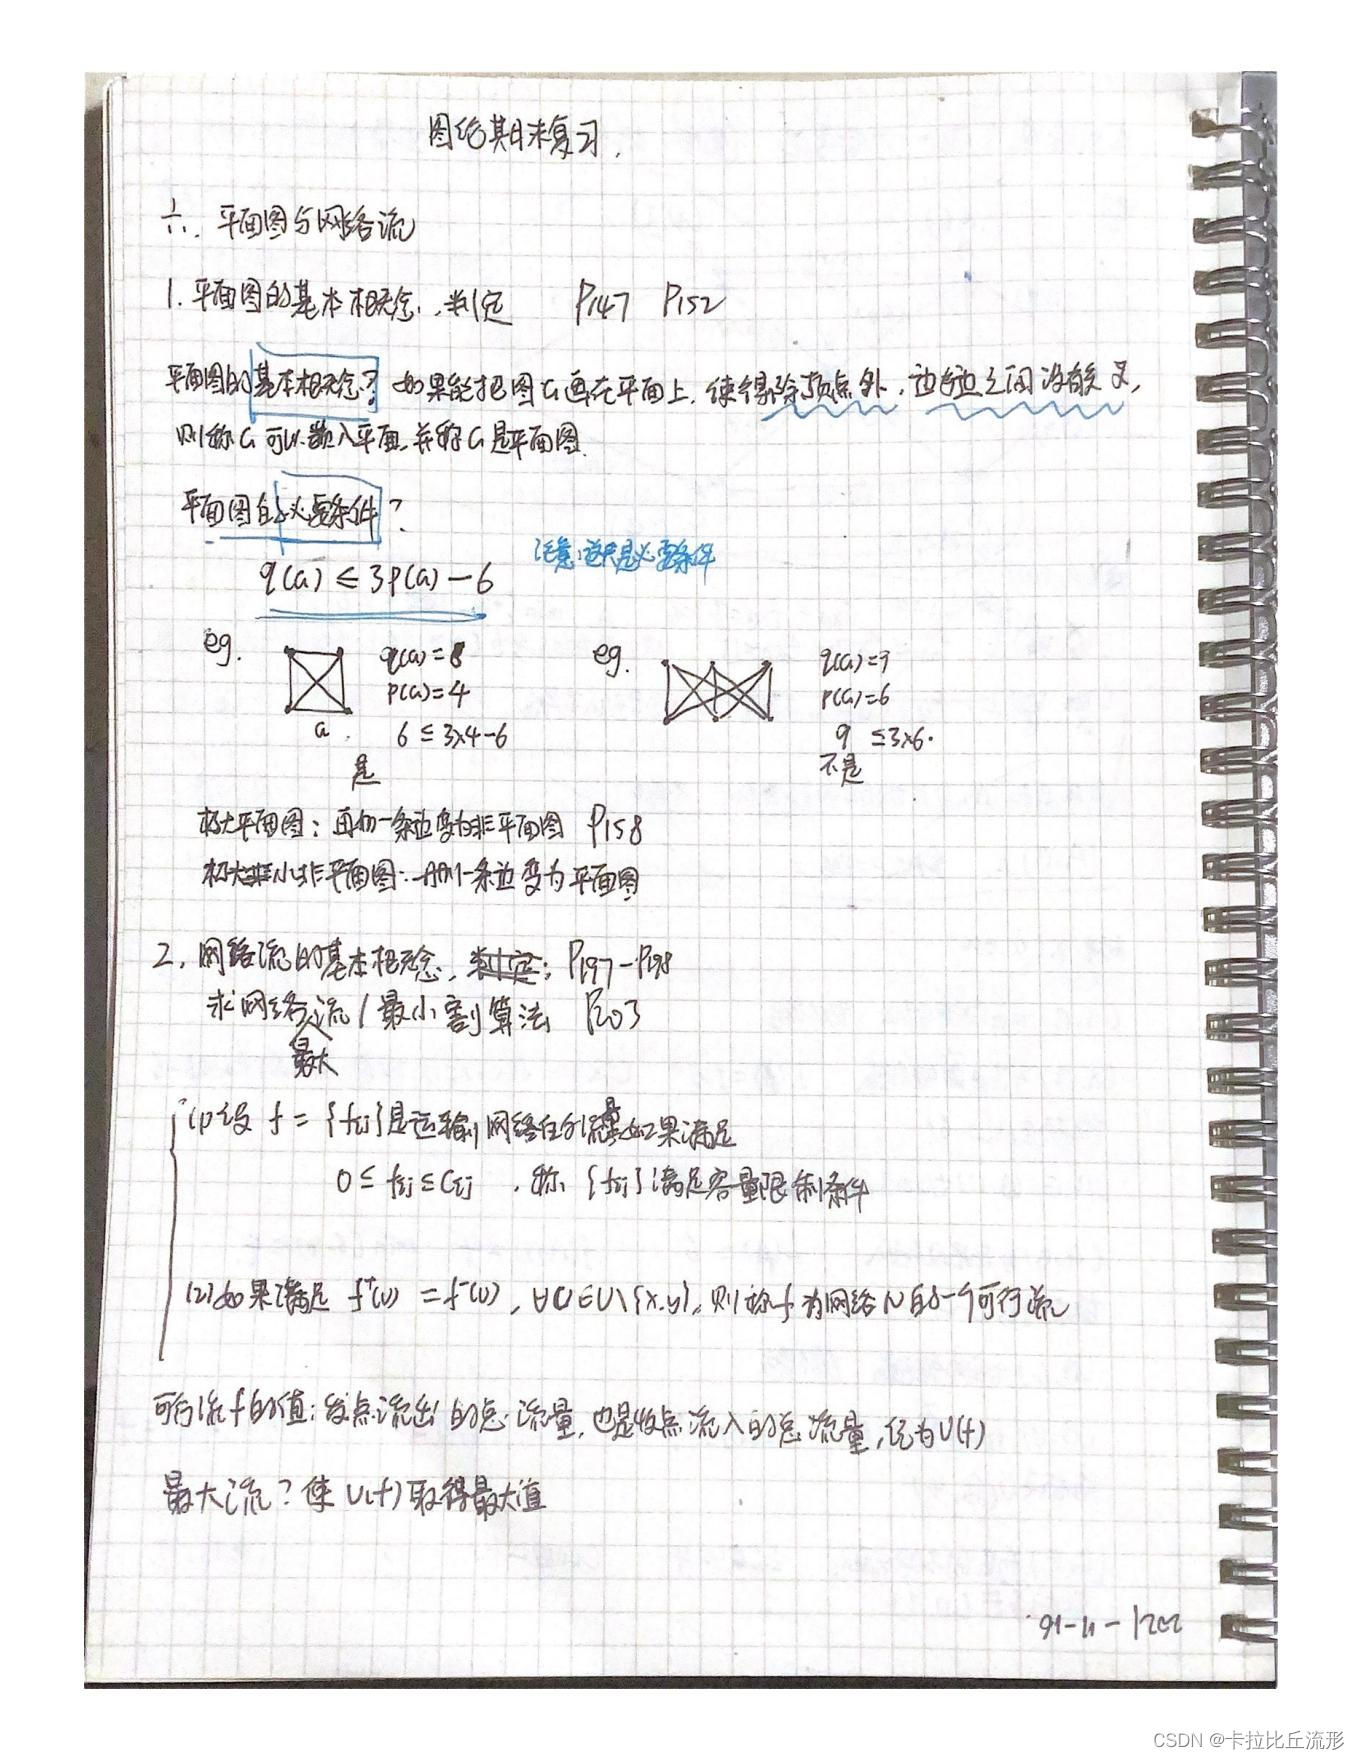 图论期末复习.
六. 平面图与网络流
1. 平面图的基本概念, 判定 P147 P152
平面图的基本概念? 如果能把图G画在平面上, 使得除顶点外, 边与边之间没有交叉,
则称G可以嵌入平面, 并称G是平面图.
平面图的必要条件?
注意:这只是必要条件
q(G) ≤ 3p(G) - 6
eg. q(G)=6 eg. q(G)=9
p(G)=4 p(G)=6
G. 6 ≤ 3×4-6 9 ≤ 3×6.
是 不是
极大平面图: 再加一条边变为非平面图 P158
极小非平面图: 删一条边变为平面图
2. 网络流的基本概念, 判定; P197-P198
求网络最大流/最小割算法 P203
(1) 设 f = {fij}是运输网络的流量如果满足
0 ≤ fij ≤ Cij , 称 {fij}满足容量限制条件
(2) 如果满足 f⁺(v) = f⁻(v), ∀v∈V\{x,y}, 则称f为网络N的一个可行流
可行流f的值: 发点流出的总流量, 也是收点流入的总流量, 记为V(f)
最大流? 使V(f)取得最大值
CSDN @卡拉比丘流形